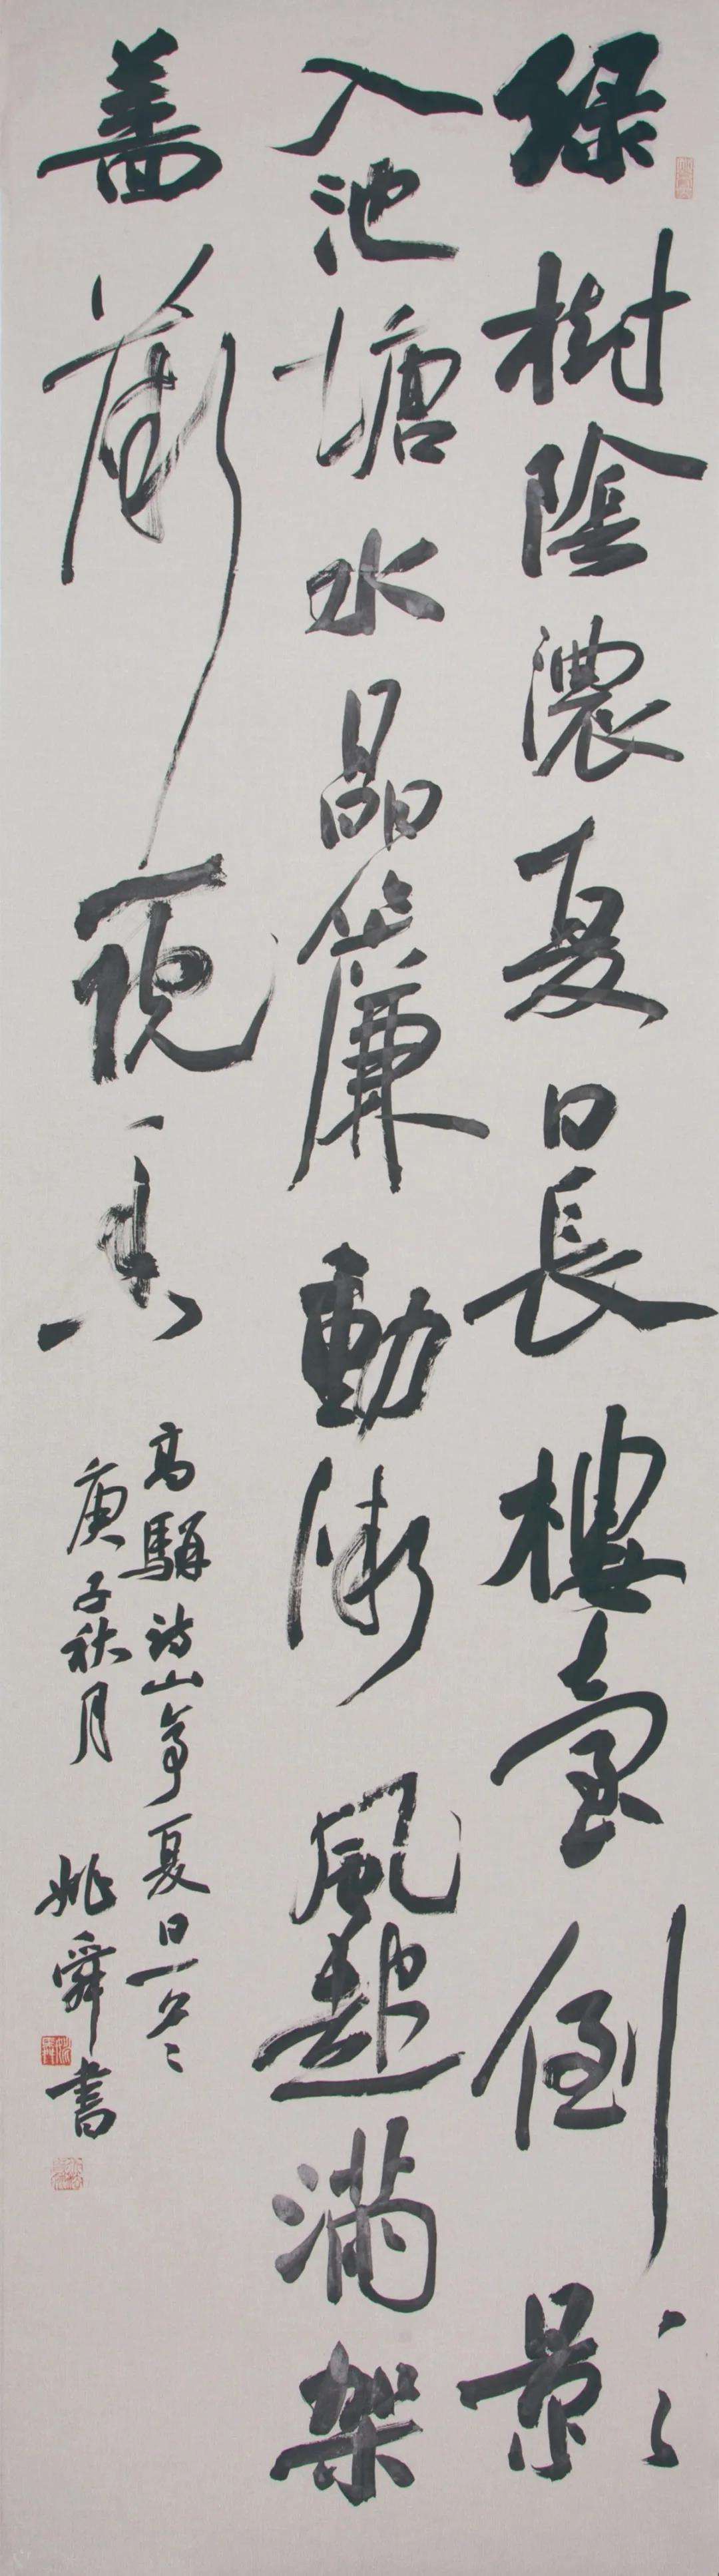 綠樹陰濃夏日長樓臺倒影
入池塘水晶簾動微風起滿架
薔薇一院香
高駢詩山亭夏日一首
庚子秋月 姚舜書